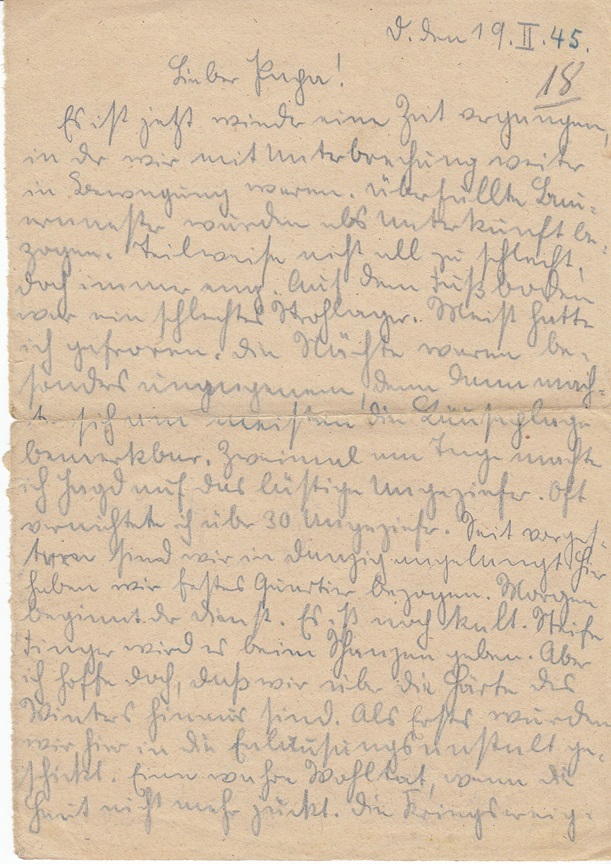 D. den 19. II. 45.
18
Lieber Papa!
Es ist jetzt wieder eine Zeit vergangen,
in der wir mit Unterbrechung weiter
in Bewegung waren. Überfüllte Bau-
ernnester wurden als Unterkunft be-
zogen. Teilweise nicht all zu schlecht,
doch immer eng. Auf dem Fußboden
war ein schlechtes Strohlager. Meist hatte
ich gefroren. Die Nächte waren be-
sonders unangenehm, denn dann mach-
te sich am meisten die Läuseplage
bemerkbar. Zweimal am Tage machte
ich Jagd auf das lästige Ungeziefer. Oft
vernichtete ich über 30 Ungeziefer. Seit vorges-
tern sind wir in Danzig angelangt. Hier
haben wir festes Quartier bezogen. Morgen
beginnt der Dienst. Es ist noch kalt. Steife
Finger wird es beim Schanzen geben. Aber
ich hoffe doch, daß wir über die Härte des
Winters hinaus sind. Als Erstes wurden
wir hier in die Entlausungsanstalt ge-
schickt. Eine wahre Wohltat, wenn die
Haut nicht mehr juckt. Die Kriegsereig-